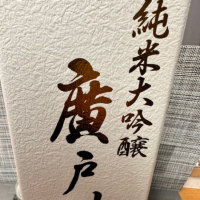 純米大吟醸
廣戸